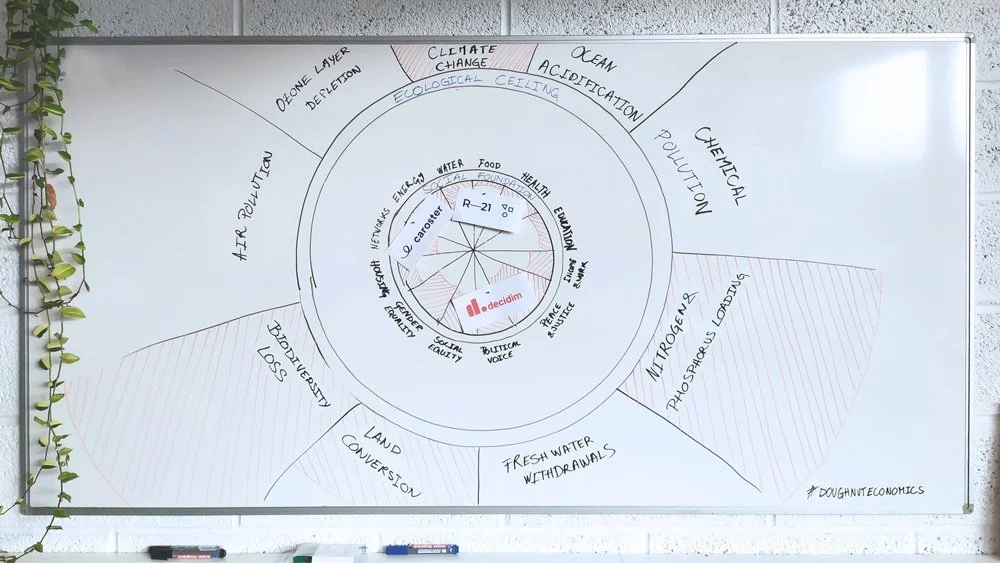 OZONE LAYER
DEPLETION
CLIMATE
CHANGE
OCEAN
ACIDIFICATION
ECOLOGICAL CEILING
AIR POLLUTION
CHEMICAL
POLLUTION
WATER
FOOD
HEALTH
EDUCATION
INCOME
& WORK
PEACE
& JUSTICE
POLITICAL
VOICE
SOCIAL
EQUITY
GENDER
EQUALITY
HOUSING
NETWORKS
ENERGY
SOCIAL FOUNDATION
caroster
R—21
decidim
BIODIVERSITY
LOSS
NITROGEN &
PHOSPHORUS LOADING
LAND
CONVERSION
FRESHWATER
WITHDRAWALS
#DOUGHNUTECONOMICS